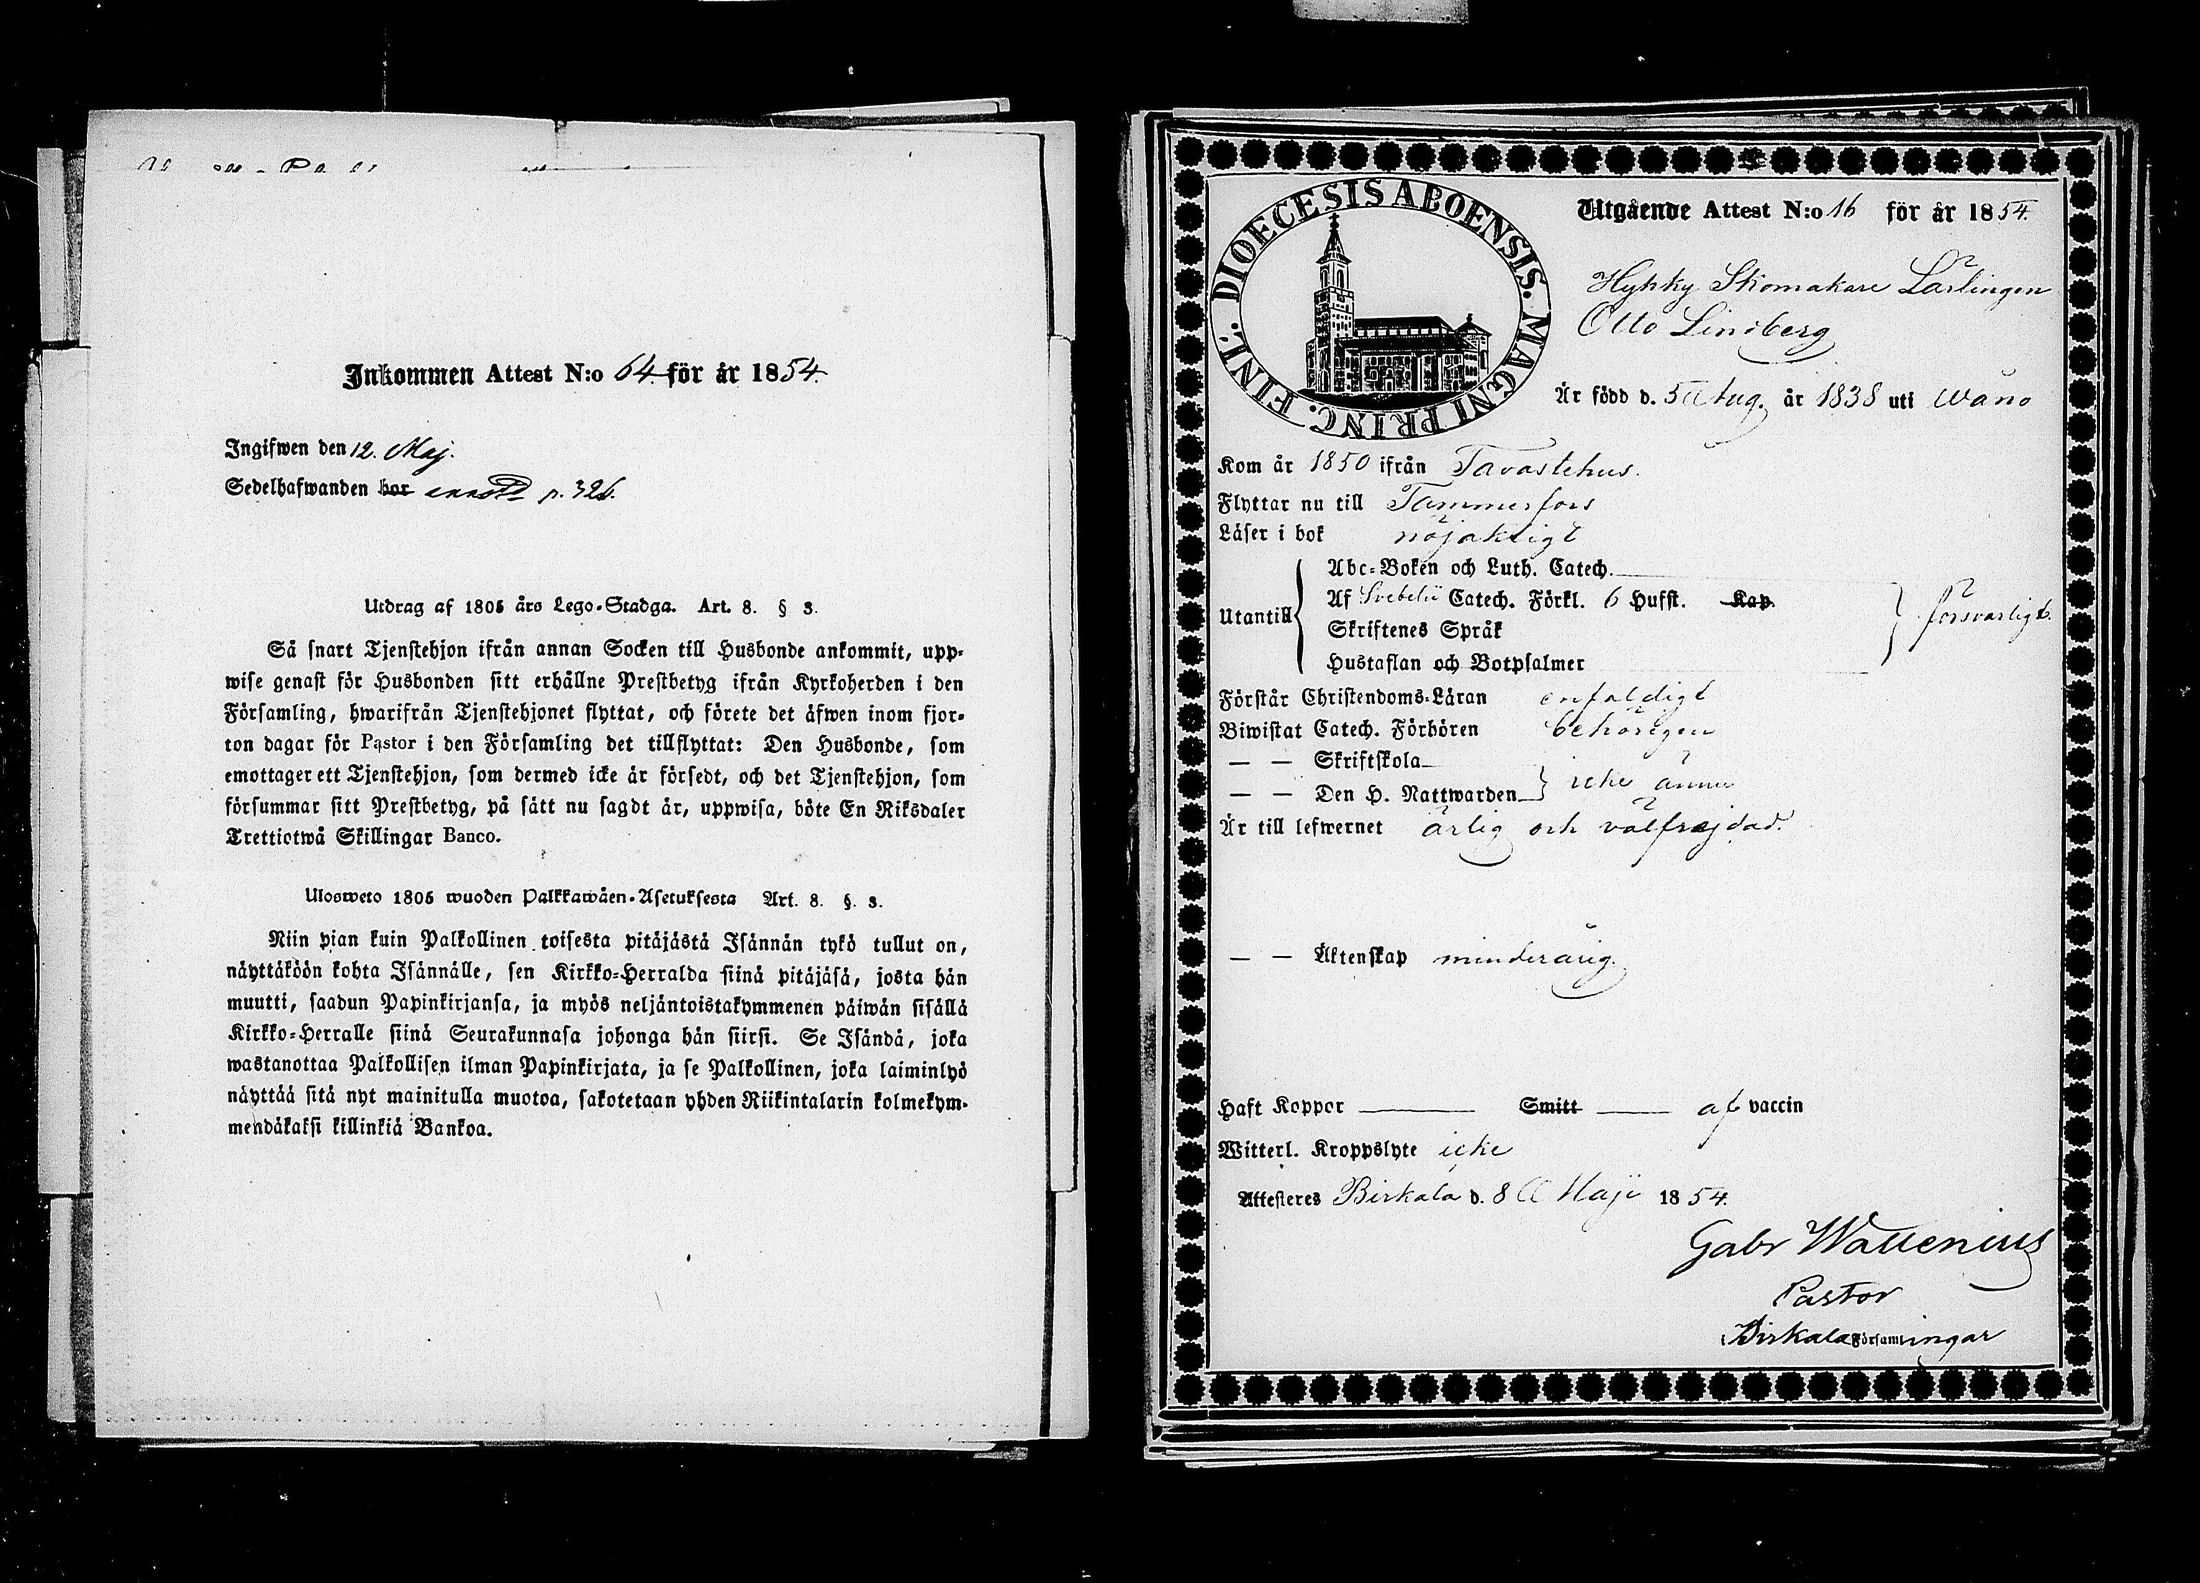 Inkommen Attest N:o 64. för år 1854.
Ingifwen den 12. Maj.
Sedelhafwanden bor p. 326.
Utdrag af 1805 års Lego-Stadga. Art. 8. § 3.
Så snart Tjenstehjon ifrån annan Socken till Husbonde ankommit, upp-
wise genast för Husbonden sitt erhållne Prestbetyg ifrån Kyrkoherden i den
Församling, hwarifrån Tjenstehjonet flyttat, och förete det äfwen inom fjor-
ton dagar för Pastor i den Församling det tillflyttat: Den Husbonde, som
emottager ett Tjenstehjon, som dermed icke är försedt, och det Tjenstehjon, som
försummar sitt Prestbetyg, på sätt nu sagdt är, uppwisa, böte En Riksdaler
Trettiotwå Skillingar Banco.
Ulosweto 1805 wuoden Palkkawäen-Asetuksesta Art. 8. §. 3.
Niin pian kuin Palkollinen toisesta pitäjästä Isännän tykö tullut on,
näyttäköön kohta Isännälle, sen Kirkko-Herralda siinä pitäjäsä, josta hän
muutti, saadun Papinkirjansa, ja myös neljäntoistakymmenen päiwän sisällä
Kirkko-Herralle siinä Seurakunnasa johonga hän siirsi. Se Isändä, joka
wastanottaa Palkollisen ilman Papinkirjata, ja se Palkollinen, joka laiminlyö
näyttää sitä nyt mainitulla muotoa, sakotetaan yhden Riikintalarin kolmekym-
mendäkaksi killinkiä Bankoa.
DIOECESIS ABOENSIS. MAGNI PRINC. FINL.
Utgående Attest N:o 16 för år 1854.
Hyhky Skomakare Lärlingen
Otto Lindberg
Är född d. 5 Aug. år 1838 uti Wånå
Kom år 1850 ifrån Tavastehus.
Flyttar nu till Tammerfors
Läser i bok nöjaktigt
Utantill
Abc-Boken och Luth. Catech.
Af Svebelii Catech. Förkl. 6 Hufst. Kap.
Skriftenes Språk
Hustaflan och Botpsalmer
försvarligt.
Förstår Christendoms-Läran enfaldigt
Biwistat Catech. Förhören behörigen
— — Skriftskola
— — Den H. Nattwarden icke ännu
Är till lefwernet ärlig och välfrejdad.
— — Äktenskap minderårig.
Haft Koppor Smitt af vaccin
Witterl. Kroppslyte icke
Attesteres Birkala d. 8 Maji 1854.
Gabr Wallenius
Pastor
i Birkala Församlingar